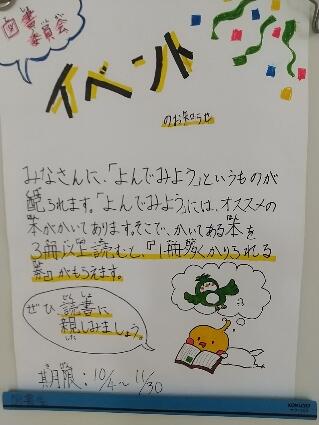 図書
委員会
イベント
のお知らせ
みなさんに、「よんでみよう」というものが
配られます。「よんでみよう」には、オススメの
本がかいてあります。そこで、かいてある本を
3冊以上読むと、『1冊多くかりられる
券』がもらえます。
ぜひ、読書に
親しみましょう。
期限:10/4〜11/30
KOKUYO